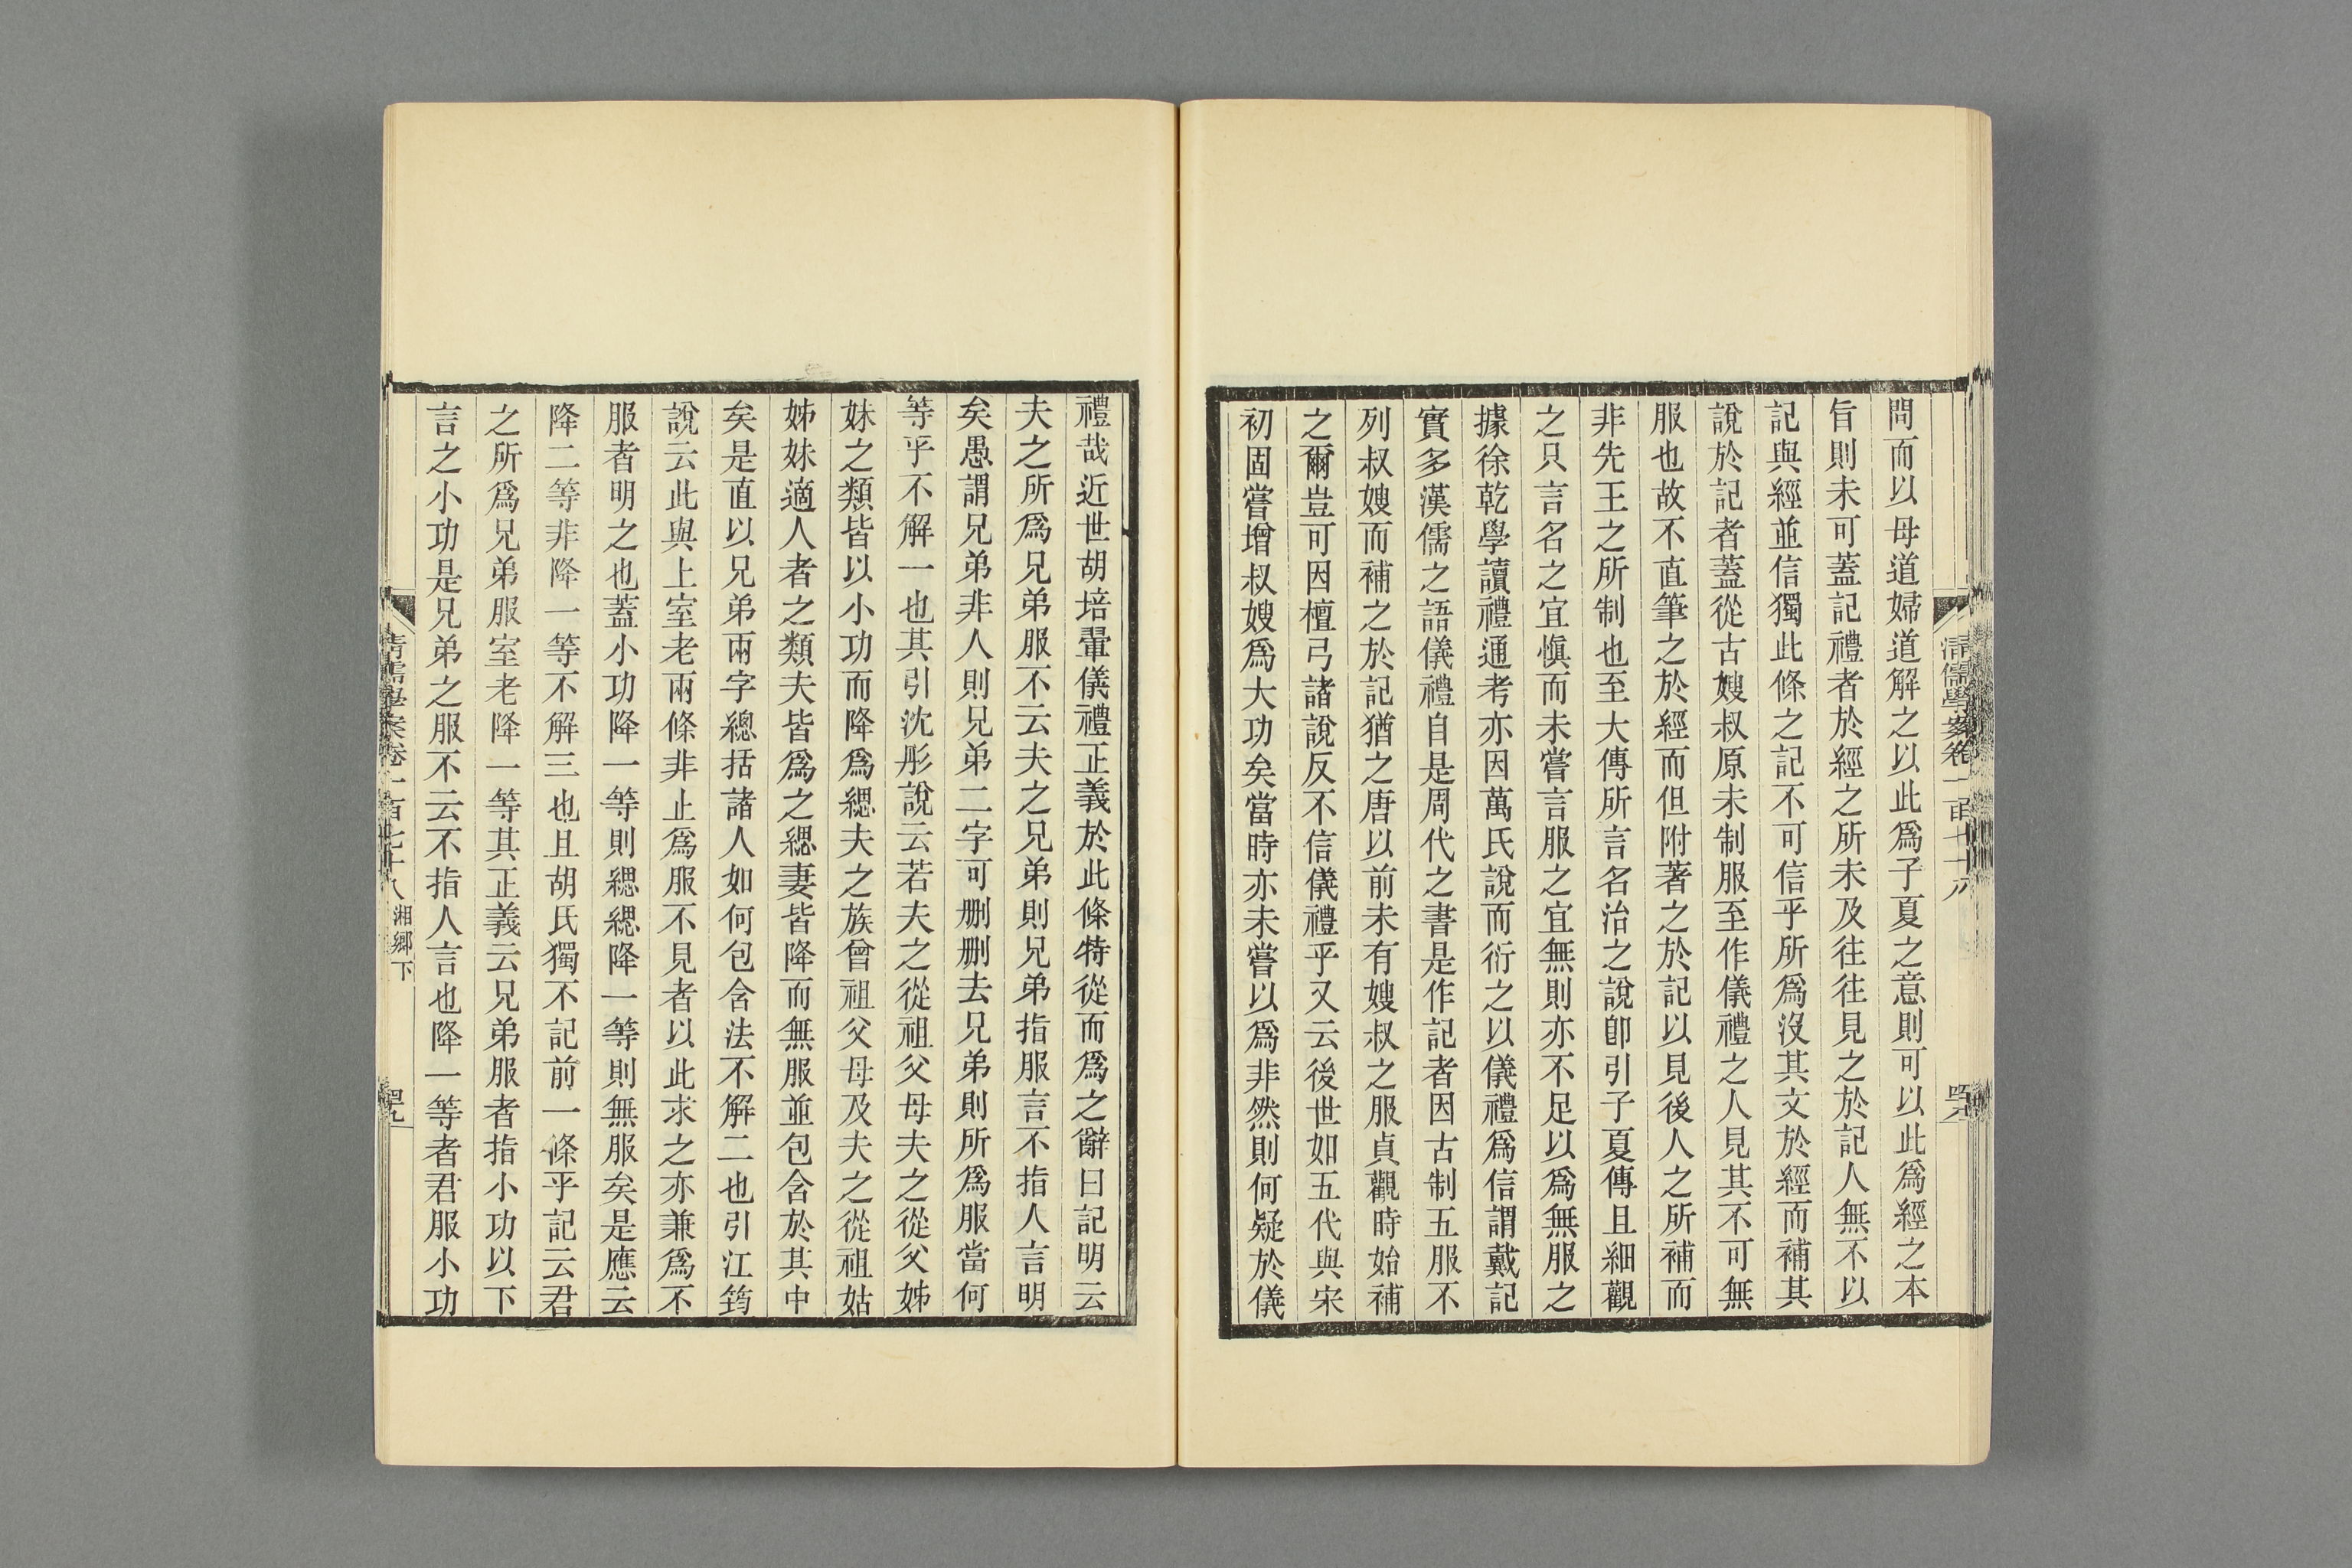 清儒學案卷一百七十八
問而以母道婦道解之以此爲子夏之意則可以此爲經之本
旨則未可蓋記禮者於經之所未及往往見之於記人無不以
記與經並信獨此條之記不可信乎所爲沒其文於經而補其
說於記者蓋從古嫂叔原未制服至作儀禮之人見其不可無
服也故不直筆之於經而但附著之於記以見後人之所補而
非先王之所制也至大傳所言名治之說卽引子夏傳且細觀
之只言名之宜愼而未嘗言服之宜無則亦不足以爲無服之
據徐乾學讀禮通考亦因萬氏說而衍之以儀禮爲信謂戴記
實多漢儒之語儀禮自是周代之書是作記者因古制五服不
列叔嫂而補之於記猶之唐以前未有嫂叔之服貞觀時始補
之爾豈可因檀弓諸說反不信儀禮乎又云後世如五代與宋
初固嘗增叔嫂爲大功矣當時亦未嘗以爲非然則何疑於儀
禮哉近世胡培翬儀禮正義於此條特從而爲之辭曰記明云
夫之所爲兄弟服不云夫之兄弟則兄弟指服言不指人言明
矣愚謂兄弟非人則兄弟二字可删删去兄弟則所爲服當何
等乎不解一也其引沈彤說云若夫之從祖父母夫之從父姊
妹之類皆以小功而降爲緦夫之族曾祖父母及夫之從祖姑
姊妹適人者之類夫皆爲之緦妻皆降而無服並包含於其中
矣是直以兄弟兩字總括諸人如何包含法不解二也引江筠
說云此與上室老兩條非止爲服不見者以此求之亦兼爲不
服者明之也蓋小功降一等則緦緦降一等則無服矣是應云
降二等非降一等不解三也且胡氏獨不記前一條乎記云君
之所爲兄弟服室老降一等其正義云兄弟服者指小功以下
言之小功是兄弟之服不云不指人言也降一等者君服小功
清儒學案卷一百七十八 湘鄉下 罕九